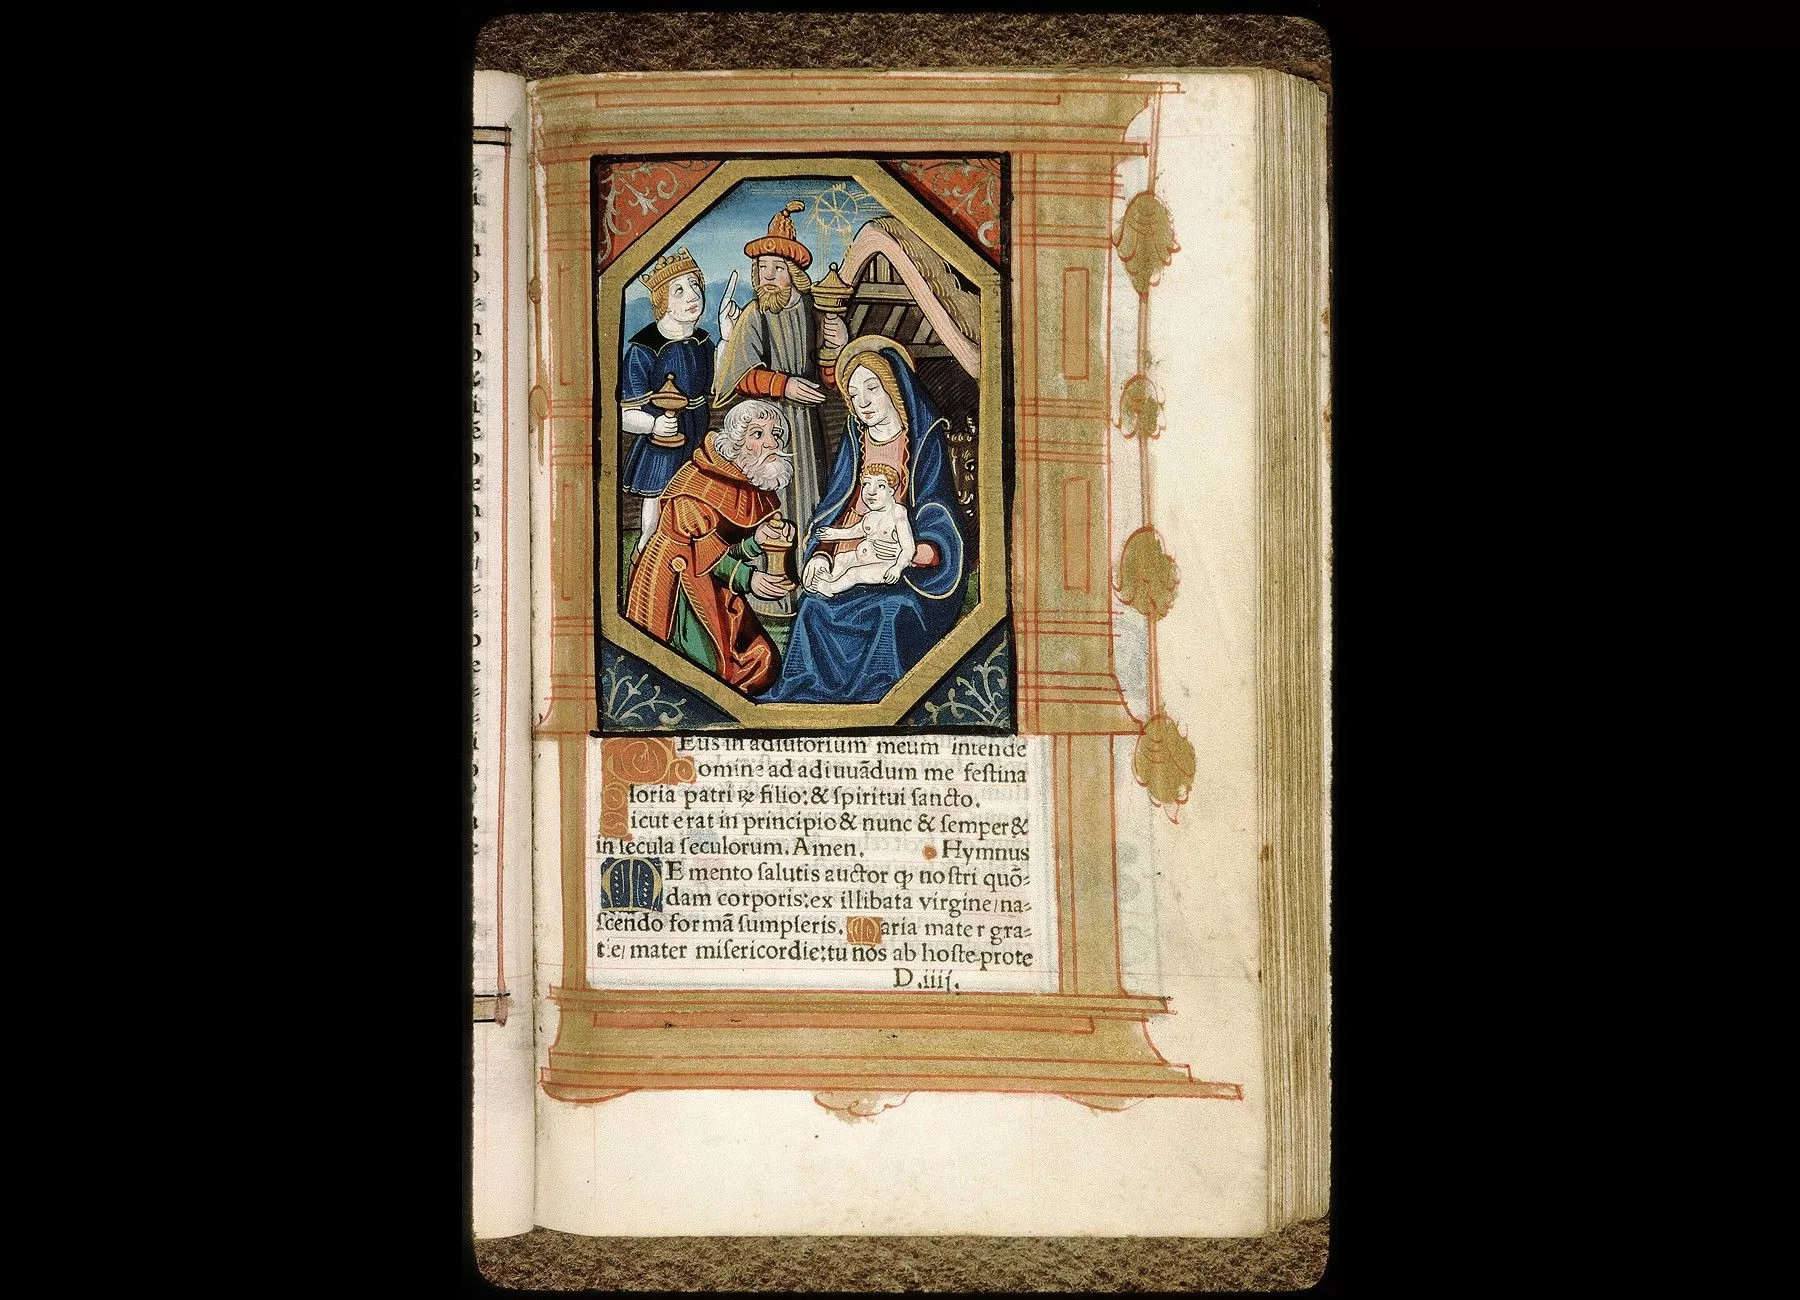 Eus in adiutorium meum intende
omine ad adiuuãdum me feſtina
loria patri ⁊ filio: & ſpiritui ſancto.
icut erat in principio & nunc & ſemper &
in ſecula ſeculorum. Amen. Hymnus
ME mento ſalutis auctor ꝙ noſtri quõ-
dam corporis: ex illibata virgine / na-
ſcẽdo formã ſumpſeris. Maria mater gra-
tie / mater miſericordie: tu nos ab hoſte prote
D.iiij.